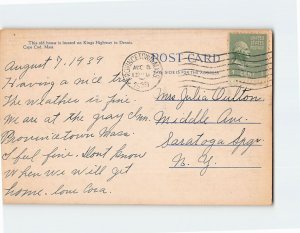 This old house is located on Kings Highway in Dennis,
Cape Cod, Mass.
POST CARD
PROVINCETOWN, MASS.
AUG 8
1939
August 7, 1939
Having a nice trip
The weather is fine.
We are at the Gray Inn.
Provincetown Mass.
I feel fine. Dont know
when we will get
home. love Cora.
Mrs Julia Oulton.
Middle Ave.
Saratoga Spgs
N. Y.